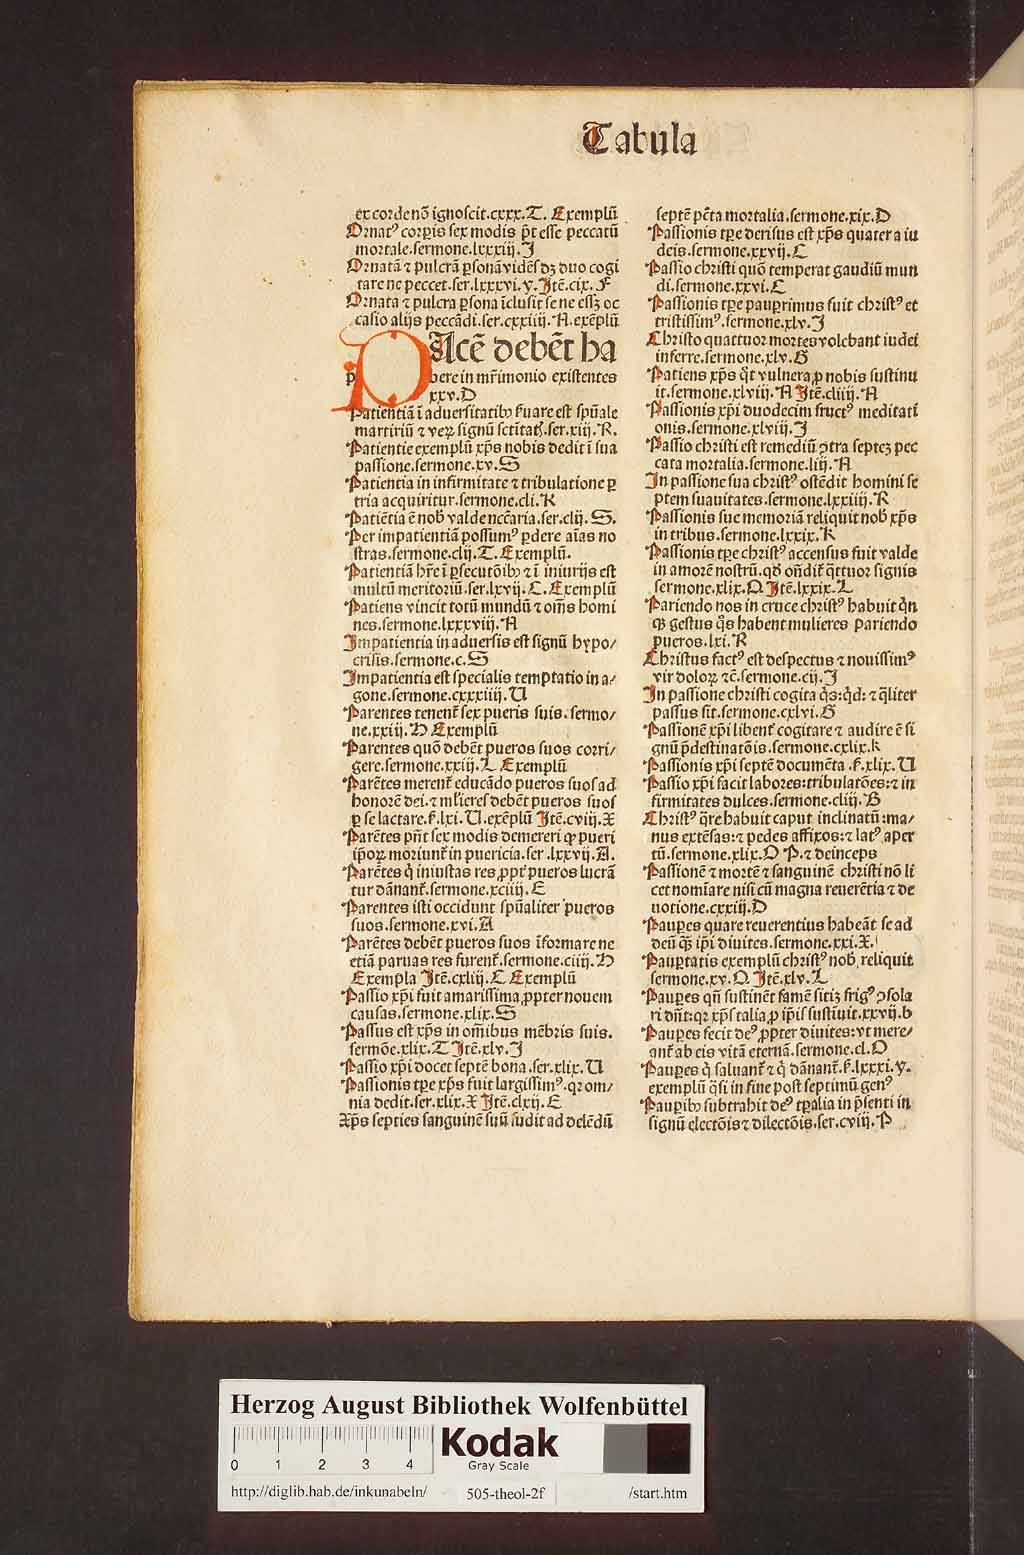 Tabula
ex corde nō ignoscit.cxxx.T. Exemplū
Ornatꝰ corꝑis sex modis pt̄ esse peccatū
mortale.sermone.lxxxiij.J
Ornatā ⁊ pulcrā ꝑsonā vidēs dꝫ duo cogi
tare ne peccet.ser.lxxxvi.y.Jtē.cix.F
Ornata ⁊ pulcra ꝑsona īclusit se ne eēꝫ oc
casio alijs peccādi.ser.cxxiiij.A.exēplū
PAcē debēt ha
bere in mr̄imonio existentes
xxv.D
Patientiā ī aduersitatibꝰ ẜuare est spūale
martiriū ⁊ veꝝ signū sctitatꝭ.ser.xiij.R.
Patientie exemplū xp̄s nobis dedit ī sua
passione.sermone.xv.S
Patientia in infirmitate ⁊ tribulatione p
tria acquiritur.sermone.cli.R
Patiētia ē nob̄ valde nccāria.ser.clij.S.
Per impatientiā possumꝰ ꝑdere aīas no
stras.sermone.clij.T.Exemplū.
Patientiā hr̄e ī ꝑsecutōibꝰ ⁊ ī iniurijs est
multū meritoriū.ser.lxvij.C.Exemplū
Patiens vincit totū mundū ⁊ om̄s homi
nes.sermone.lxxxviij.A
Impatientia in aduersis est signū hypo/
crisis.sermone.c.S
Impatientia est specialis temptatio in a/
gone.sermone.cxxxiiij.U
Parentes tenent̄ sex pueris suis.sermo/
ne.xxiij.H Exemplū
Parentes quō debēt pueros suos corri/
gere.sermone.xxiij.L Exemplū
Parētes merent̄ educādo pueros suos ad
honorē dei.⁊ ml̄ieres debēt pueros suos
ꝑ se lactare.ẜ.lxi.U.exēplū Jtē.cviij.X
Parētes pn̄t sex modis demereri ꝙ pueri
ip̄oꝝ moriunt̄ in puericia.ser.lxxvij.A.
Parētes q̇ iniustas res ꝓpt̄ pueros lucrā
tur dānant̄.sermone.xciiij.E
Parentes isti occidunt spūaliter pueros
suos.sermone.xvi.A
Parētes debēt pueros suos īformare ne
etiā paruas res furent̄.sermone.ciiij.H
Exempla Jtē.cxliij.C Exemplū
Passio xp̄i fuit amarissima ꝓpter nouem
causas.sermone.xlix.S
Passus est xp̄s in om̄ibus mēbris suis.
sermōe.xlix.T Jtē.xlv.J
Passio xp̄i docet septē bona.ser.xlix.U
Passionis tꝑe xp̄s fuit largissimꝰ.qꝛ om/
nia dedit.ser.xlix.X Jtē.clxij.E
Xp̄s septies sanguinē suū fudit ad delēdū
septē pctā mortalia.sermone.xix.D
Passionis tꝑe derisus est xp̄s quater a iu
deis.sermone.xxvij.C
Passio christi quō temperat gaudiū mun
di.sermone.xxvi.C
Passionis tꝑe pauꝑrimus fuit christꝰ et
tristissimꝰ.sermone.xlv.J
Christo quattuor mortes volebant iudei
inferre.sermone.xlv.G
Patiens xp̄s qt̄ vulnera ꝓ nobis sustinu
it.sermone.xlviij.A Jtē.cliiij.A
Passionis xp̄i duodecim fructꝰ meditati
onis.sermone.xlviij.J
Passio christi est remediū ꝯtra septeꝫ pec
cata mortalia.sermone.liij.A
In passione sua christꝰ ostēdit homini se
ptem suauitates.sermone.lxxiiij.R
Passionis sue memoriā reliquit nob̄ xp̄s
in tribus.sermone.lxxix.K
Passionis tꝑe christꝰ accensus fuit valde
in amorē nostrū.qd̄ on̄dit̄ q̄ttuor signis
sermone.xlix.O.Jtē.lxxix.L
Pariendo nos in cruce christꝰ habuit q̇n
qꝫ gestus q̇s habent mulieres pariendo
pueros.lxi.R
Christus factꝰ est despectus ⁊ nouissimꝰ
vir doloꝝ ⁊c̄.sermone.cij.J
In passione christi cogita q̇s:qd̄:⁊ q̄liter
passus sit.sermone.cxlvi.G
Passionē xp̄i libent̄ cogitare ⁊ audire ē si
gnū p̄destinatōis.sermone.cxlix.k
Passionis xp̄i septē documēta.ẜ.xlix.U
Passio xp̄i facit labores:tribulatōes:⁊ in
firmitates dulces.sermone.cliij.B
Christꝰ q̄re habuit caput inclinatū:ma/
nus extēsas:⁊ pedes affixos:⁊ latꝰ aper
tū.sermone.xlix.O P.⁊ deinceps
Passionē ⁊ mortē ⁊ sanguinē christi nō li
cet nomīare nisi cū magna reuerētia ⁊ de
uotione.cxxiij.D
Pauꝑes quare reuerentius habeāt se ad
deū qꝫ ip̄i diuites.sermone.xxi.X.
Pauꝑtatis exemplū christꝰ nob̄ reliquit
sermone.xv.O.Jtē.xlv.L
Pauꝑes qn̄ sustinēt famē sitiꝫ frigꝰ ꝯsola
ri dn̄t:qꝛ xp̄s talia ꝓ ip̄is sustīuit.xxvij.b
Pauꝑes fecit deꝰ ꝓpter diuites:vt mere/
ant̄ ab eis vitā eternā.sermone.cl.O
Pauꝑes q̇ saluant̄ ⁊ q̇ dānant̄.ẜ.lxxxi.y.
exemplū q̄si in fine post septimū genꝰ
Pauꝑibꝰ subtrahit deꝰ tꝑalia in p̄senti in
signū electōis ⁊ dilectōis.ser.cviij.P
Herzog August Bibliothek Wolfenbüttel
0 1 2 3 4
Kodak
Gray Scale
http://diglib.hab.de/inkunabeln/ 505-theol-2f /start.htm